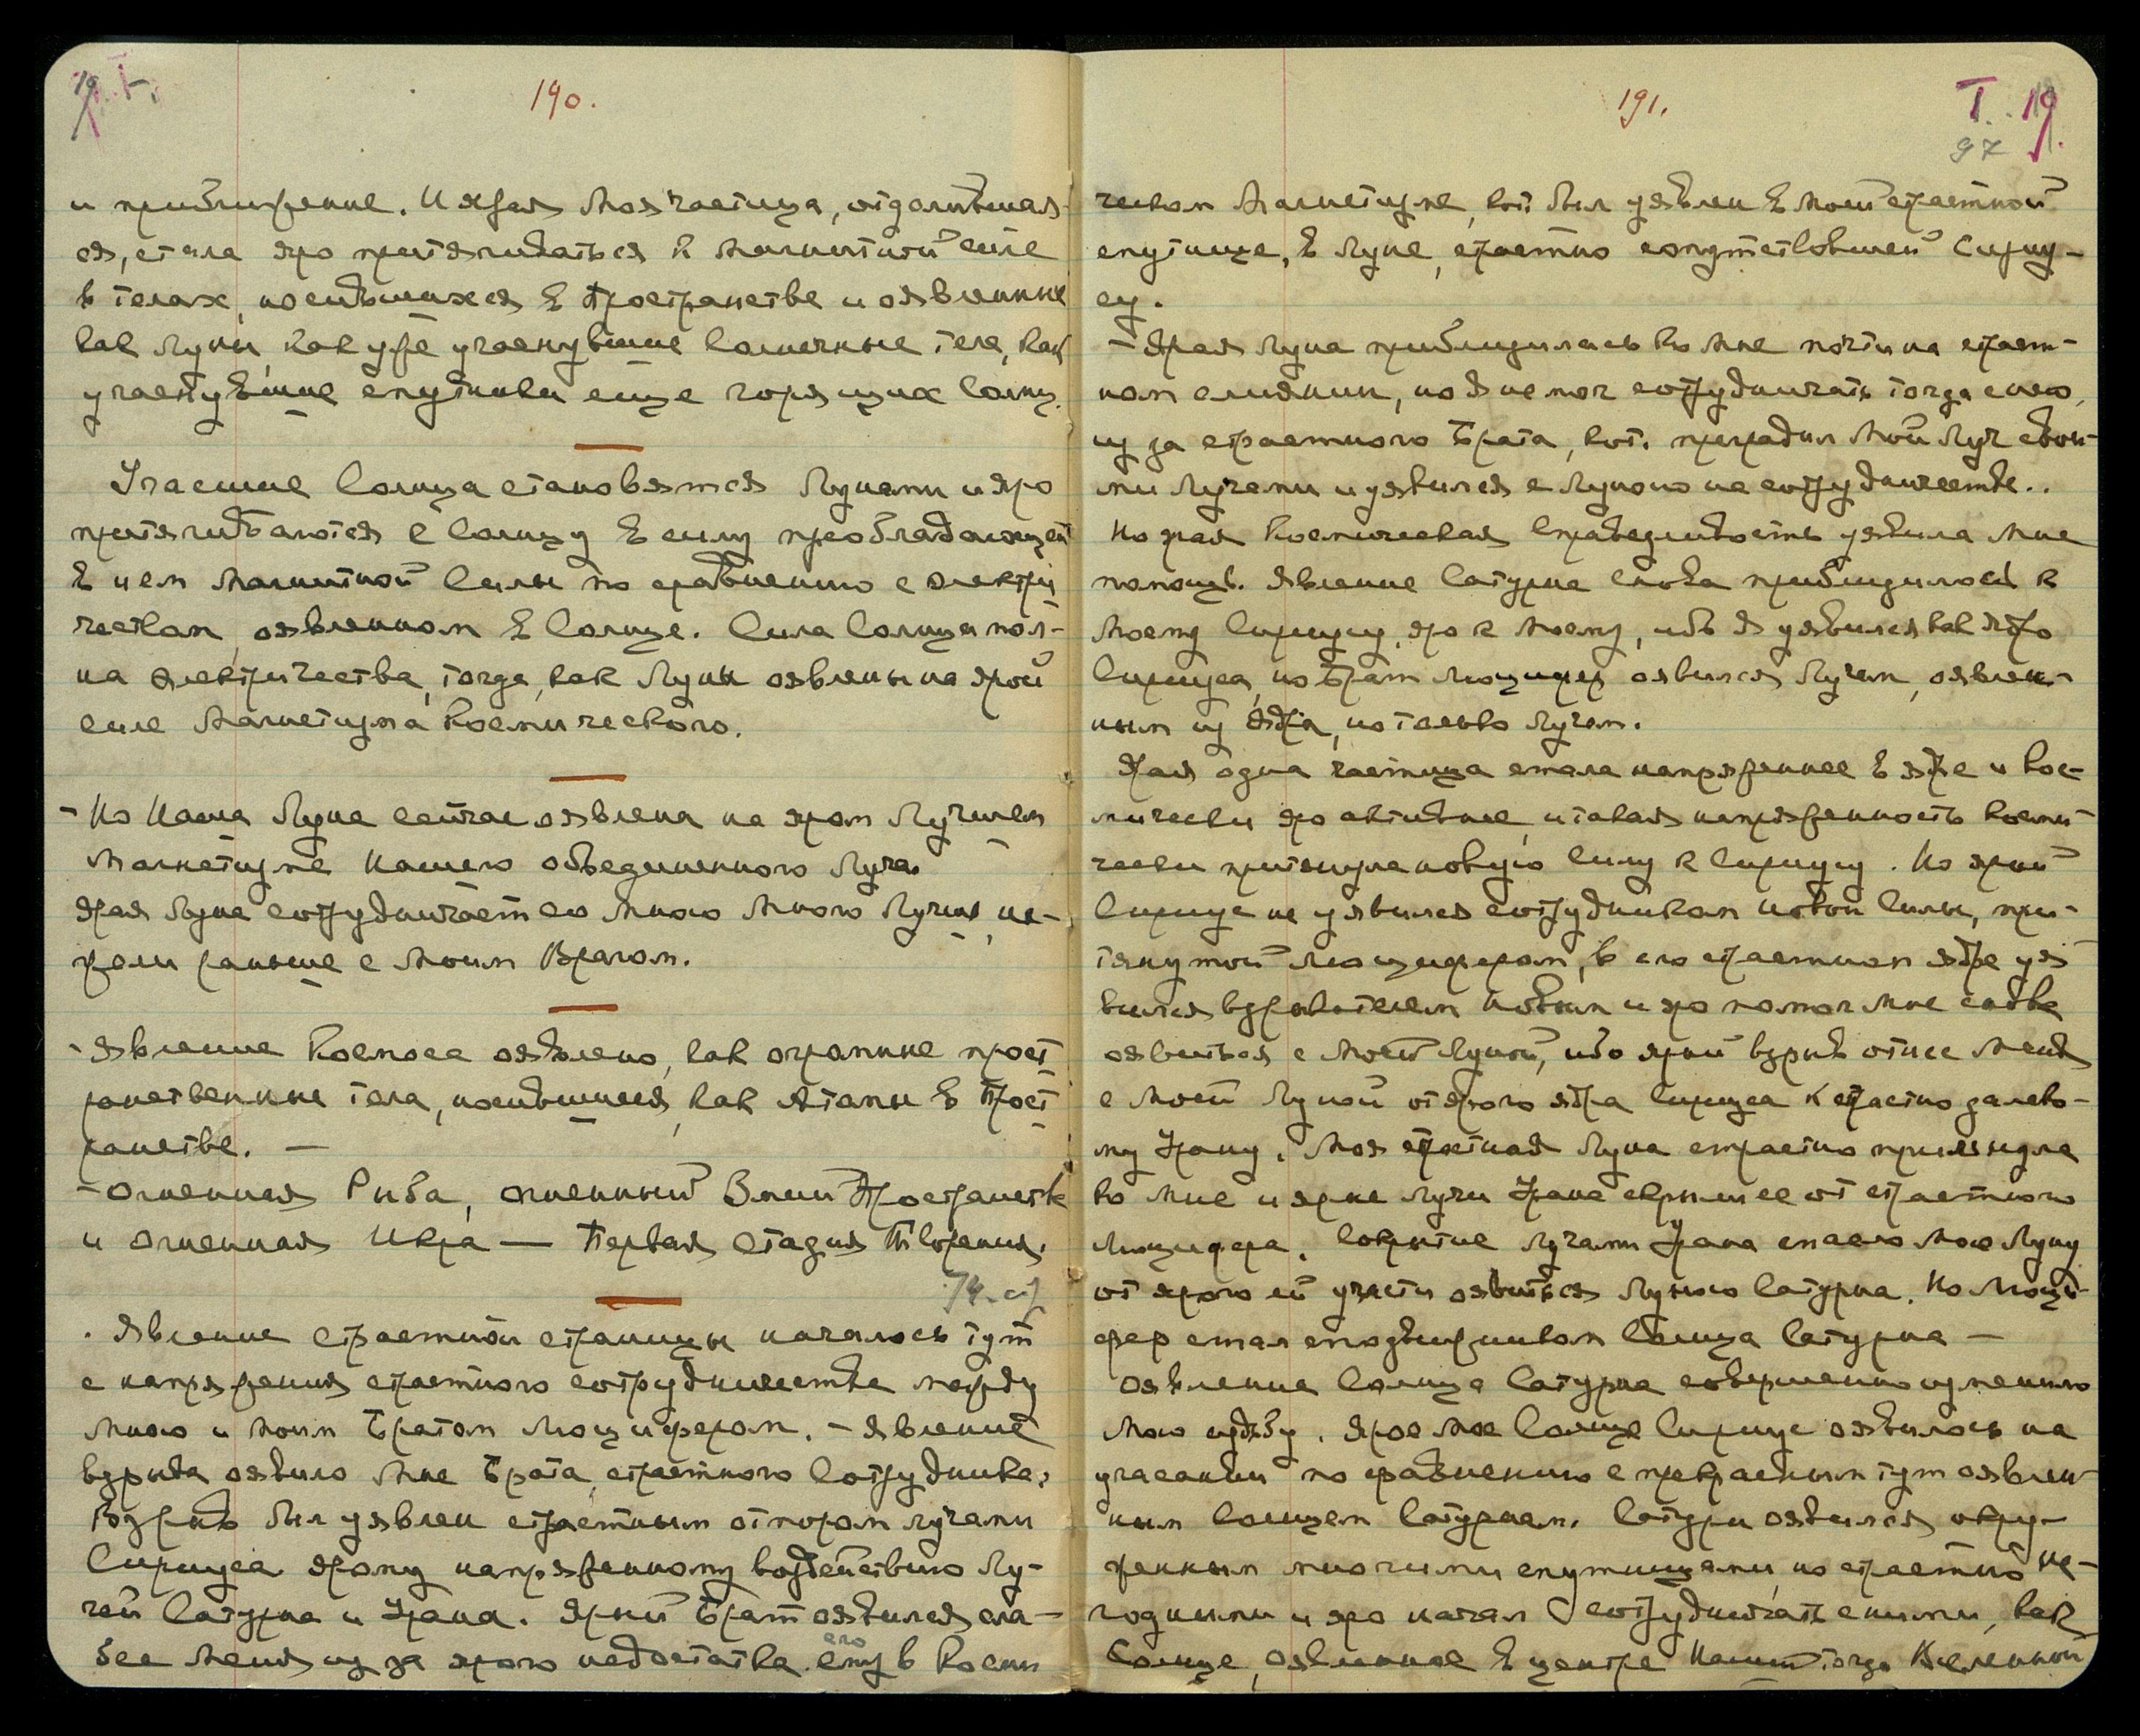 190.
и приближение. И ярая Моя частица, отдалившая-
ся, стала яро притягиваться к магнитной силе
в телах, носившихся в пространстве и оявленные
как Луны, как уже угаснувшие солнечные тела, как
угаснувшие спутники еще горящих Солнц.
Угасшие Солнца становятся Лунами и яро
притягиваются к Солнцу в силу преобладающей
в нем Магнитной Силы по сравнению с электри-
чеством, оявленном в Солнце. Сила Солнца пол-
на электричества, тогда, как Луны оявлены на ярой
силе Магнетизма Космического.
- Но Наша Луна сейчас оявлена на яром Лучшем
Магнетизме Нашего объединенного Луча.
Ярая Луна сотрудничает со Мною много лучше, не-
жели раньше с Моим Врагом.
- Явление Космоса оявлено, как огромные прост-
ранственные тела, носившиеся, как Атомы в Прост-
ранстве. —
- Огненная Рыба, огненный Змий Пространства
и огненная Икра — Первая стадия Творения.
74. стр
. Явление страстной страницы началось тут
с напряжения страстного сотрудничества между
Мною и Моим Братом Люцифером. - Явление
взрыва оявило Мне Брата, страстного Сотрудника.
Взрыв был уявлен страстным отпором лучами
Сириуса ярому напряженному воздействию Лу-
чей Сатурна и Урана. Ярый Брат оявился сла-
бее Меня из за ярого недостатка его ему в Косми
191.
T. 19.
97
ческом Магнетизме, кот. был уявлен в Моей страстной
спутнице, в Луне, страстно сопутствовшей Сириу-
су.
- Ярая Луна приблизилась ко Мне почти на страст-
ном слиянии, но Я не мог сотрудничать тогда с нею,
из за страстного Брата, кот. преградил Мой Луч свои-
ми Лучами и уявился с Луною на сотрудничестве..
Но ярая Космическая Справедливость уявила Мне
помощь. Явление Сатурна снова приблизилось к
Моему Сириусу, яро к Моему, ибо Я уявился как Ядро
Сириуса, но Брат Люцифер оявился Лучем, оявлен-
ным из Ядра, но только Лучем.
Ярая одна частица стала напряженнее в ядре и кос-
мически яро активнее, и такая напряженность косми-
чески притянула новую Силу к Сириусу. Но ярый
Сириус не уявился сотрудником новой Силы, при-
тянутой Люцифером, в его страстном ядре уя
вился взрывателем новым и яро помог Мне снова
оявиться с Моей Луной, ибо ярый взрыв отнес Меня
с Моей Луной от ярого ядра Сириуса к страстно далеко-
му Урану. Моя страстная Луна страстно примкнула
ко Мне и ярые лучи Урана скрыли ее от страстного
Люцифера. Сокрытие лучами Урана спасло Мою Луну
от ярого ей участи оявиться Луною Сатурна. Но Люци-
фер стал сподвижником Солнца Сатурна —
Оявление Солнца Сатурна совершенно изменило
Мою судьбу. Ярое Мое Солнце Сириус оявилось на
угасании по сравнению с прекрасным тут оявлен-
ным Солнцем Сатурном. Сатурн оявился окру-
женным многими спутницами, но страстно не-
годными и яро начал сотрудничать с ними, как
Солнце, оявленное в центре Нашей тогда Вселенной